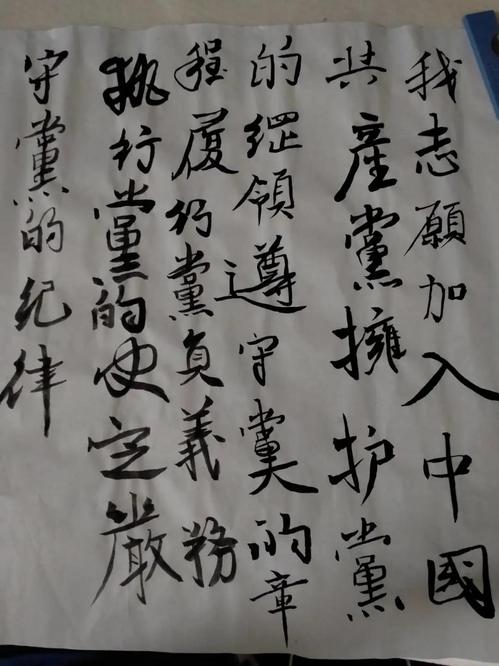 我志願加入中國
共產黨擁护黨
的綱領遵守黨的章
程履行黨員義務
執行黨的决定嚴
守黨的紀律